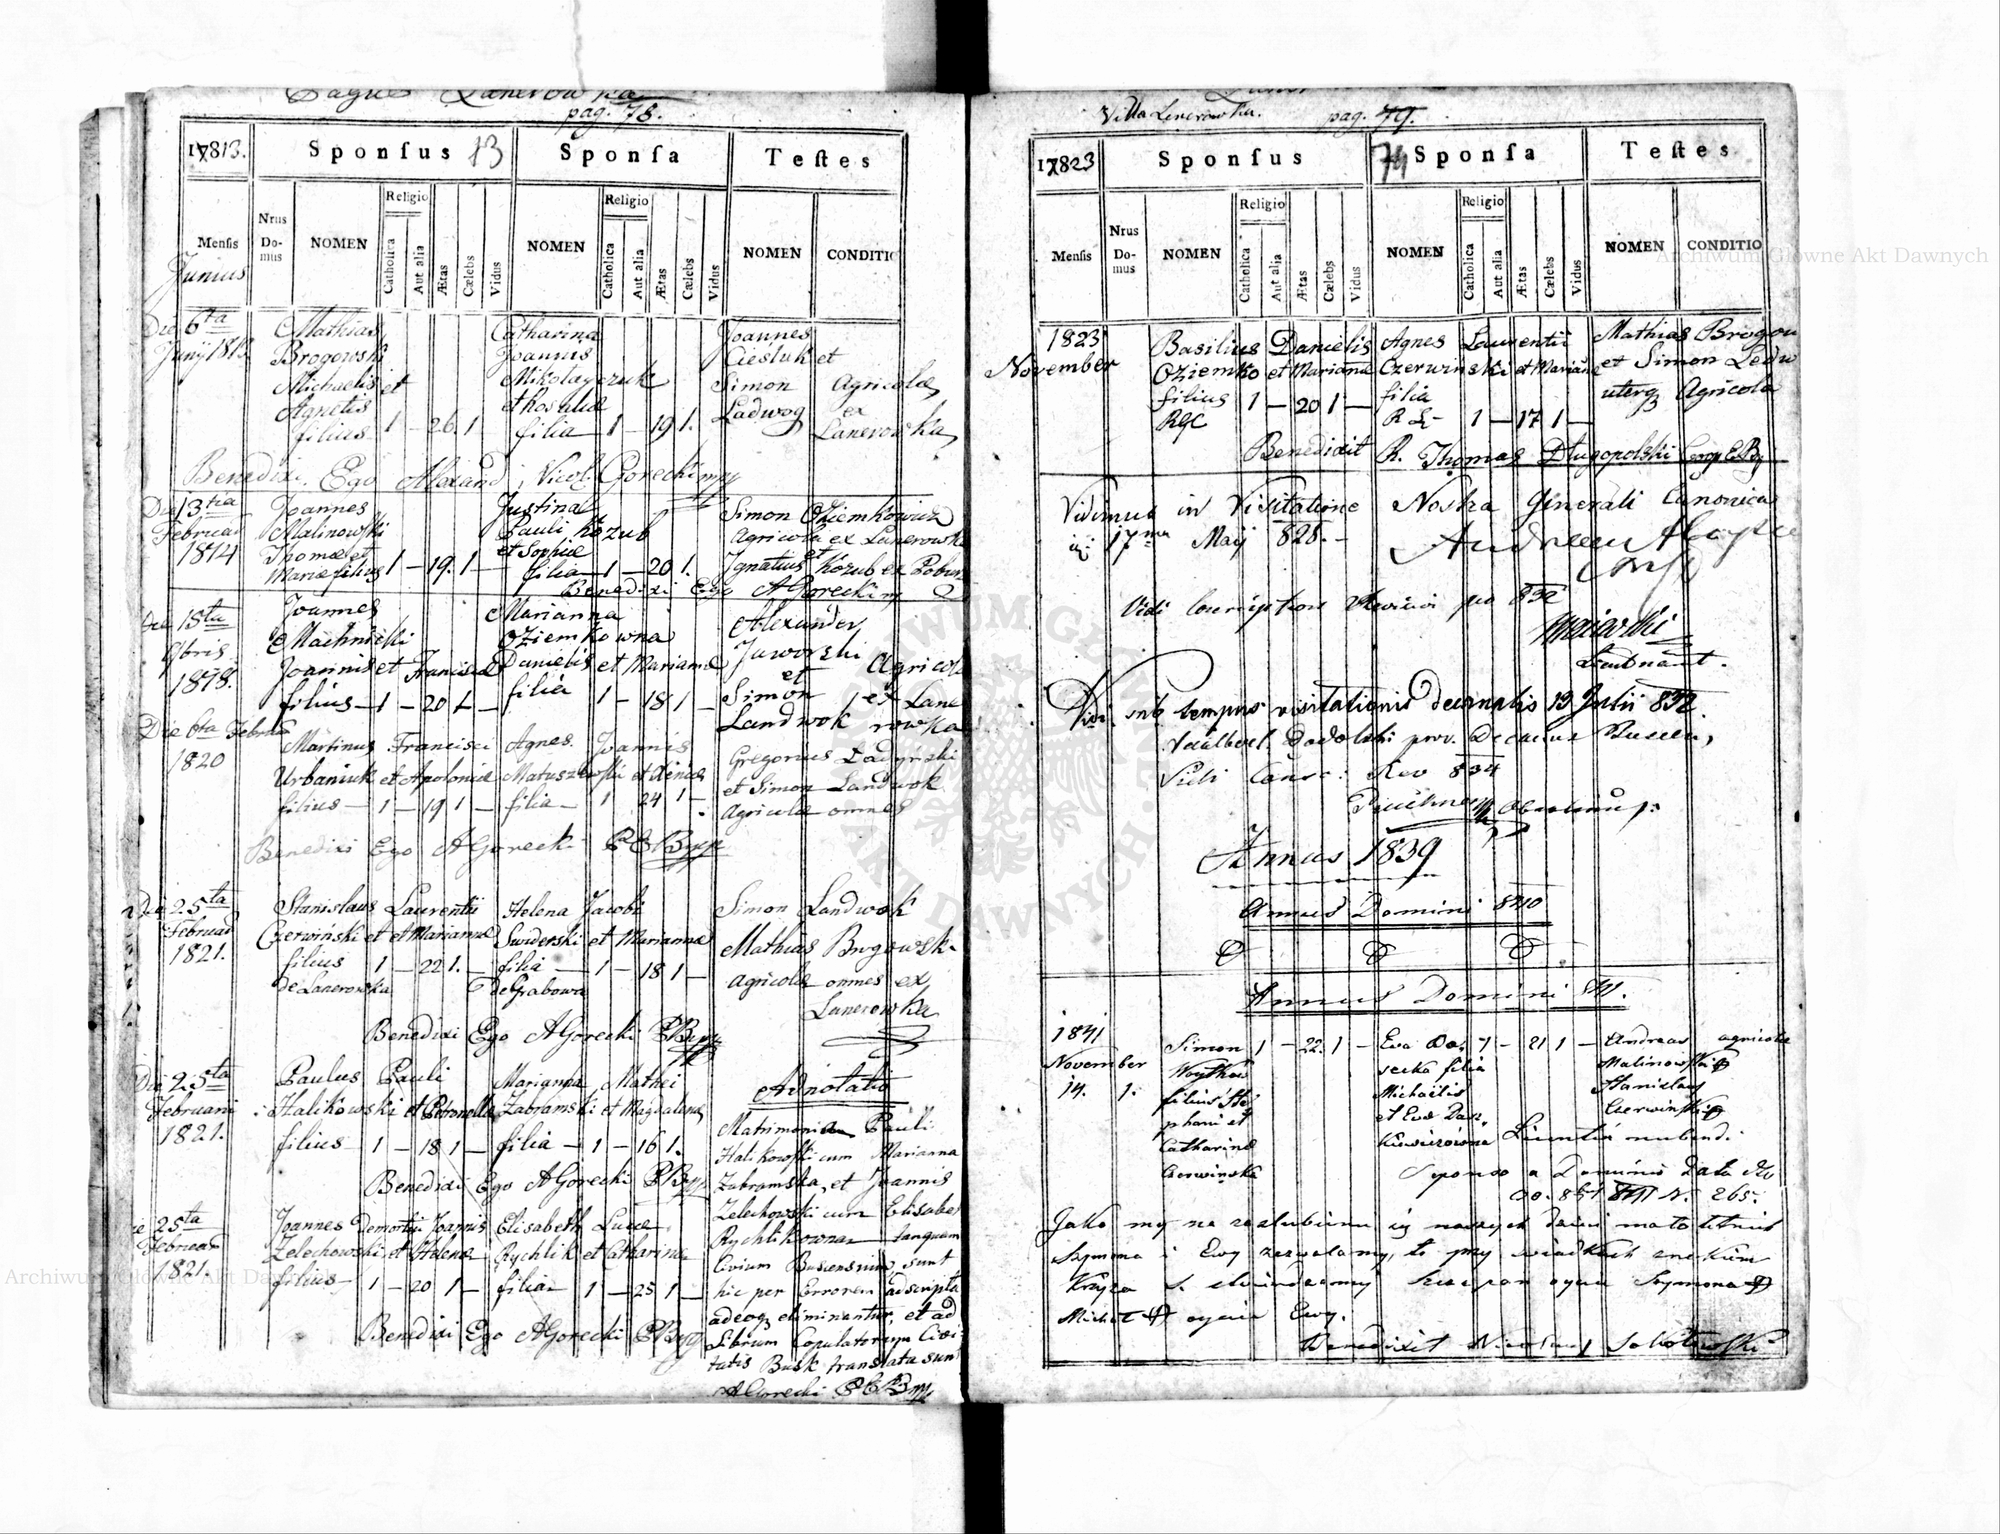 Pagus Lanerowka
pag. 78.
17813. Sponsus 73 Sponsa Testes
Mensis Nrus Domus NOMEN Religio Catholica Aut alia Ætas Cælebs Vidus NOMEN Religio Catholica Aut alia Ætas Cælebs Vidus NOMEN CONDITIO
Junius
Die 6ta Mathias Catharina Joannes
Junÿ 1813 Brogowski Joannis Cieśluk et
Michaelis et Mikolayczuk Simon Agricolæ
Agnetis et Rosaliæ Ladwog ex
filius 1 — 26. 1 filia 1 — 19 1. Lanerowka
Benedixi Ego Alexand, Vicol. Gorecki mpp
Die 13tia Joannes Justina Simon Oziemkowicz
Februar Malinowski Pauli Kozub Agricola ex Lanerowka
1814 Thomæ et et Sophiæ et
Mariæ filius 1 — 19. 1 — filia 1 — 20 1. Ignatius Kozub ex Pobuz
Benedixi Ego AGorecki mp
Die 18ta Joannes Marianna Alexander
9bris Machnicki Oziemkowna Jaworski
1818. Joannis et Francisca Danielis et Mariannæ et Agricol
filius — 1 — 20 1 — filia 1 — 18 1 — Simon ex Lane
Landwok rowka
Die 6ta Februar
1820 Martinus Francisci Agnes Joannis Gregorius Ladyński
Urbaniuk et Apoloniæ Matuszewski et Xeniæ et Simon Landwok
filius — 1 — 19 1 — filia — 1 24 1 — Agricolæ omnes
Benedixi Ego AGorecki PEBmpp
Die 25ta Stanislaus Laurentii Helena Jacobi Simon Landwok
Februar Czerwiński et Mariannæ Swiderski et Mariannæ Mathias Brogowsk
1821. filius 1 — 22 1. — filia — 1 — 18 1 — Agricolæ omnes ex
de Lanerowka de Grabowa Lanerowka
Benedixi Ego AGorecki PBmpp
Die 25ta Paulus Pauli Marianna Mathei Adnotatio
Februarii Halikowski et Petronella Zabramski et Magdalena Matrimonia Pauli
1821. filius — 1 — 18 1 — filia — 1 — 16 1. Halikowski cum Marianna
Benedixi Ego AGorecki PBmpp Zabramska, et Joannis
Die 25ta Joannes Demortui Joannis Elisabeth Lucæ Zelechowski cum Elisabet
Februar Zelechowski et Helenæ Rychlik et Catharina Rychlikowna tanquam
1821. filius — 1 — 20 1 — filia — 1 — 25 1 — Civium Buscensium, sunt
hic per Errorem adscripta
adeoq eliminantur, et ad
Benedixi Ego AGorecki PBmpp Librum Copulatorum Civi
tatis Busk translata sunt
AGorecki PEBmp
Villa Lenerowka. pag. 79.
17823 Sponsus 74 Sponsa Testes
Mensis Nrus Domus NOMEN Religio Catholica Aut alia Ætas Cælebs Vidus NOMEN Religio Catholica Aut alia Ætas Cælebs Vidus NOMEN CONDITIO
1823 Basilius Danielis Agnes Laurentii Mathias Brogow
November Oziemko et Mariannæ Czerwinski et Mariannæ et Simon Ledw
filius 1 — 20 1 — filia uterq Agricola
RGC R L 1 — 17 1 —
Benedixit R. Thomas Długopolski Coop E.B
Vidimus in Visitatione Nostra Generali Canonica
17ma Maÿ 828.
Andreas
Vidi Conscription Revision pro 832
Majarski
Lieutnant.
Vidi sub tempus visitationis decanalis 19 Julii 832.
Adalbert. Dodolski prov. Decanus Buscen,
Vidi Consc: Rev 834
Annus 1839
Annus Domini 840
Annus Domini 841.
1841 Simon 1 — 22. 1 — Eva Da. 1 — 21 1 — Andreas agricola
November Woytkow secka filia Malinowski
14. 1. filius Ste Michaelis Stanislaus
phani et et Evæ Das. Czerwinski
Catharinæ kiewiczowna Licentia nubendi
Czerwinska Sponso a Dominio data
00. 851 841 N. 265.
Jako my na zaslubienie się naszych dzieci małoletnich
Szymona i Ewy zezwalamy, to przy swiadkach znakiem
Krzyża S. stwierdzamy Szczepan oyciec Szymona
Michał oyciec Ewy.
Benedixit Nicolaus Sokołowski